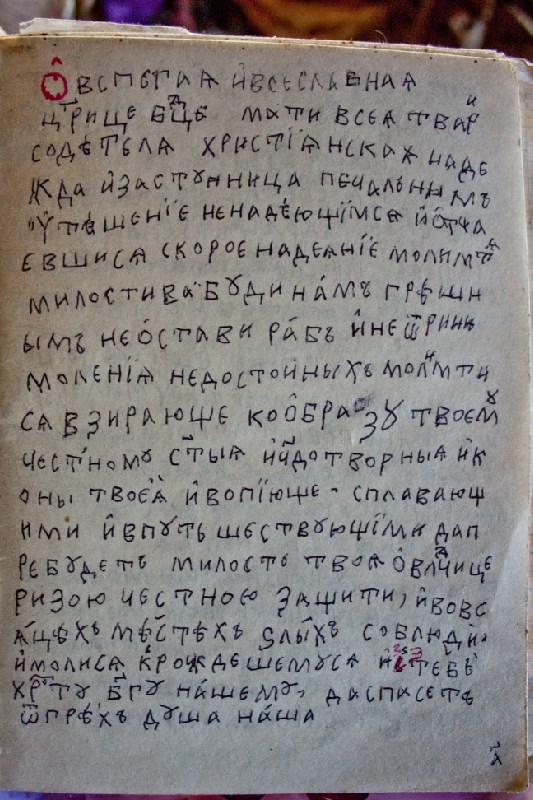 Ѻ҆ всепетая и҆всеславная
цр҃ице бц҃де мати всея твари
содѣтеля христїанская наде
жда и҆заступница печальнымъ
утѣшенїе ненадѣющїмся и҆ѿча
евшися скорое надеанїе молимтѧ
милостива буди на́мъ грѣшн
ымъ не о҆стави ра́бъ и҆не ѿрини
моленїя недостойныхъ моли́мти
ся взирающе ко о҆бразу твоему
честному ст҃ыя и҆чю́дотворныя и҆к
оны твоея̀ и҆вопїюще сплавающ
ими и҆впуть шествующїми дап
ребудетъ милость твоя о҆влⷣчице
ризою честною защити, и҆вовс
я́цѣхъ мѣ́стѣхъ ѕлы́хъ соблюди
и҆молися к рождешемуся и҆с тебе
хрⷭ҇ту бг҃у на́шему, даспасетъ
ѿгрѣхъ душа на́ша